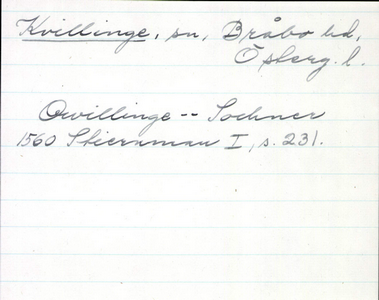 Kvillinge, sn, Bråbo hd,
Österg. l.
Qwillinge -- Sochner
1560 Stiernman I, s. 231.